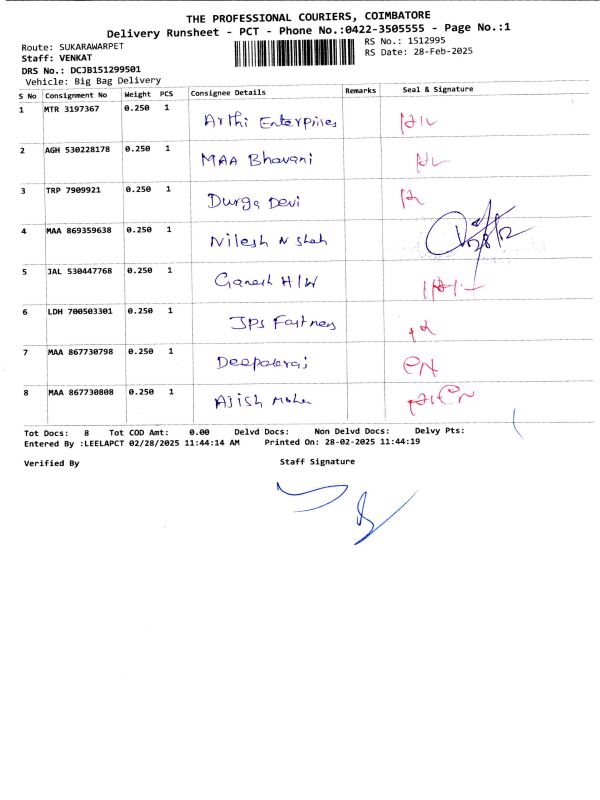 THE PROFESSIONAL COURIERS, COIMBATORE
Delivery Runsheet - PCT - Phone No.:0422-3505555 - Page No.:1
Route: SUKARAWARPET
RS No.: 1512995
Staff: VENKAT
RS Date: 28-Feb-2025
DRS No.: DCJB151299501
Vehicle: Big Bag Delivery
S No Consignment No Weight PCS Consignee Details Remarks Seal & Signature
1 MTR 3197367 0.250 1 Arthi Enterprises
2 AGH 530228178 0.250 1 MAA Bhavani
3 TRP 7909921 0.250 1 Durga Devi
4 MAA 869359638 0.250 1 Nilesh N Shah
5 JAL 530447768 0.250 1 Ganesh H/W
6 LDH 700503301 0.250 1 JPS Fastners
7 MAA 867730798 0.250 1
8 MAA 867730808 0.250 1 Ajish
Tot Docs: 8 Tot COD Amt: 0.00 Delvd Docs: Non Delvd Docs: Delvy Pts:
Entered By :LEELAPCT 02/28/2025 11:44:14 AM Printed On: 28-02-2025 11:44:19
Verified By Staff Signature